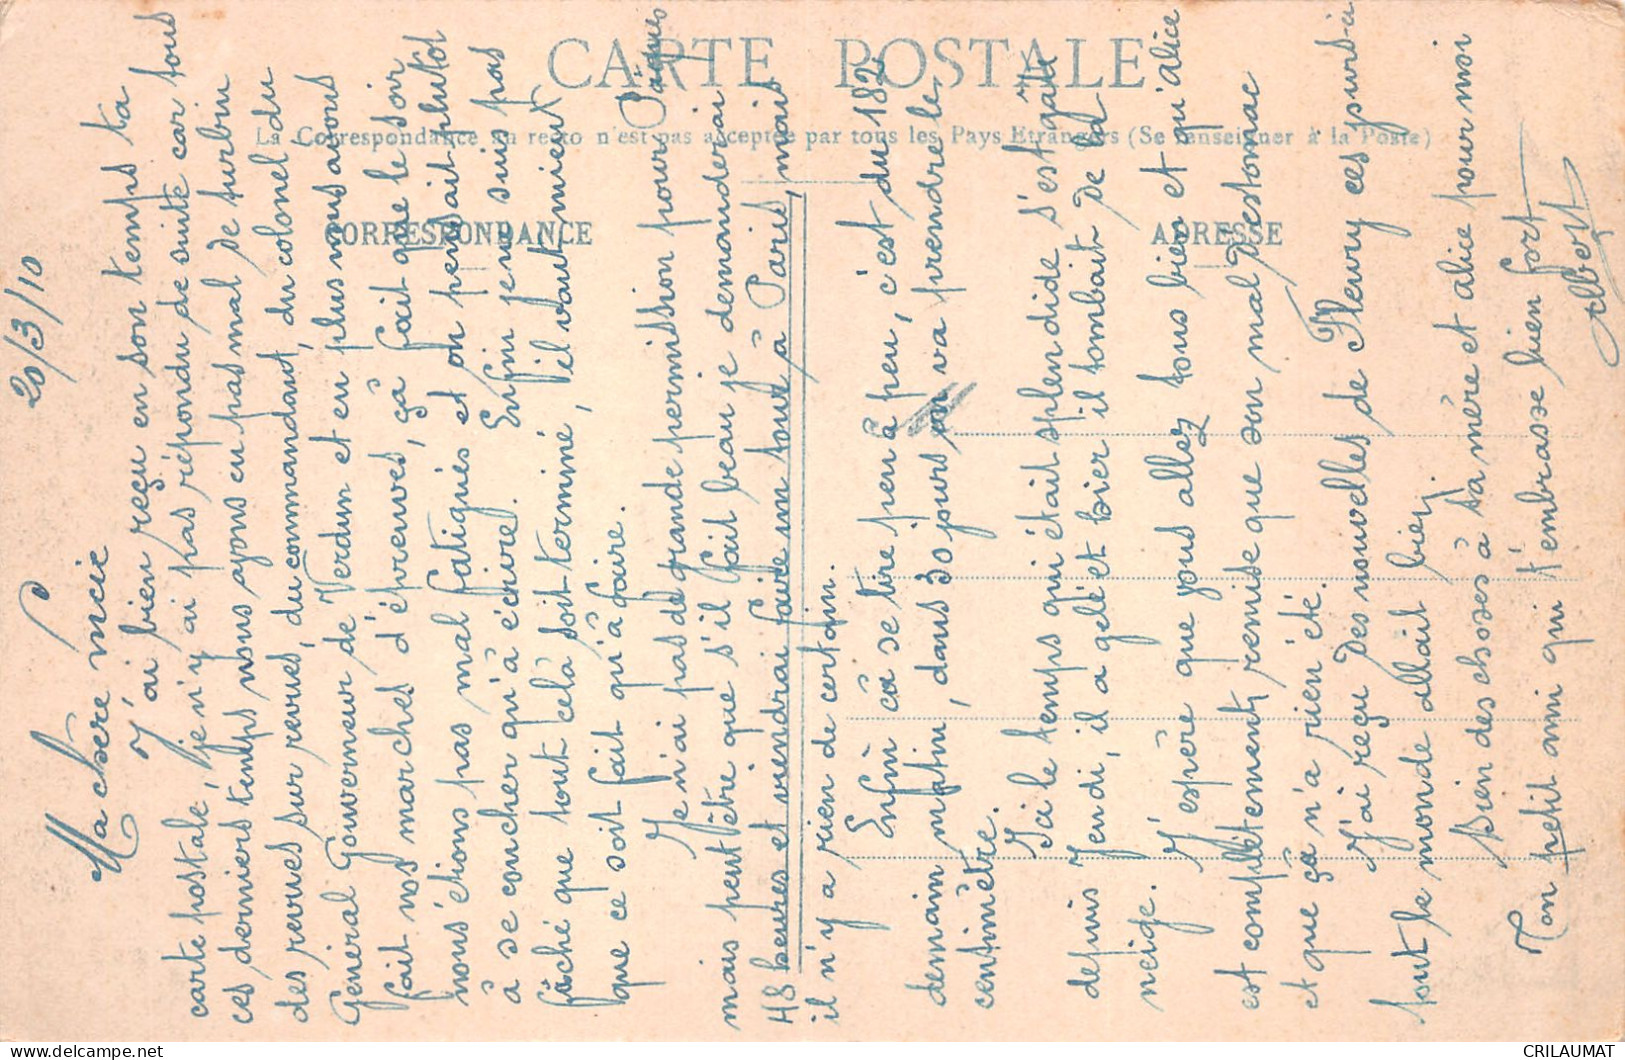 CARTE POSTALE
La Correspondance au recto n'est pas acceptée par tous les Pays Etrangers (Se renseigner à la Poste)
CORRESPONDANCE
ADRESSE
20/3/10
Ma chère
J'ai bien reçu en son temps ta
carte postale, je n'y ai pas répondu de suite car tous
ces derniers temps nous avons eu pas mal de turbin
des revues sur revues, du commandant, du colonel du
Général Gouverneur de Verdun et en plus nous avons
fait nos marches d'épreuves, çà fait que le soir
nous étions pas mal fatigués et on pensait plutôt
à se coucher qu'à écrire. Enfin je ne suis pas
fâché que tout celà soit terminé, il vaut mieux
que ce soit fait qu'à faire.
Je n'ai pas de grande permission pour Pâques
mais peut être que s'il fait beau je demanderai
48 heures et viendrai faire un tour à Paris, mais
il n'y a rien de certain.
Enfin ça se tire peu à peu, c'est du 182
demain matin, dans 30 jours on va prendre le
centimètre.
Ici le temps qui était splendide s'est gâté
depuis Jeudi, il a gelé et hier il tombait de la
neige.
J'espère que vous allez tous bien et qu'alice
est complètement remise que son mal d'estomac
et que ça n'a rien été.
J'ai reçu des nouvelles de Fleury ces jours-ci
tout le monde allait bien
Bien des choses à ta mère et alice pour moi
Ton petit ami qui t'embrasse bien fort
Albert
CRILAUMAT